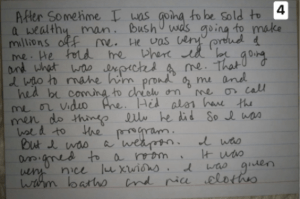 4
After Sometime I was going to be sold to
a wealthy man. Bush was going to make
millions off me. He was very proud of
me. He told me where I'd be going
and what was expected of me. That
I was to make him proud of me and
he'd be coming to check on me or call
me or video me. He'd also have the
men do things like he did so I was
used to the program.
But I was a weapon. I was
assigned to a room. It was
very nice luxurious. I was given
warm baths and nice clothes